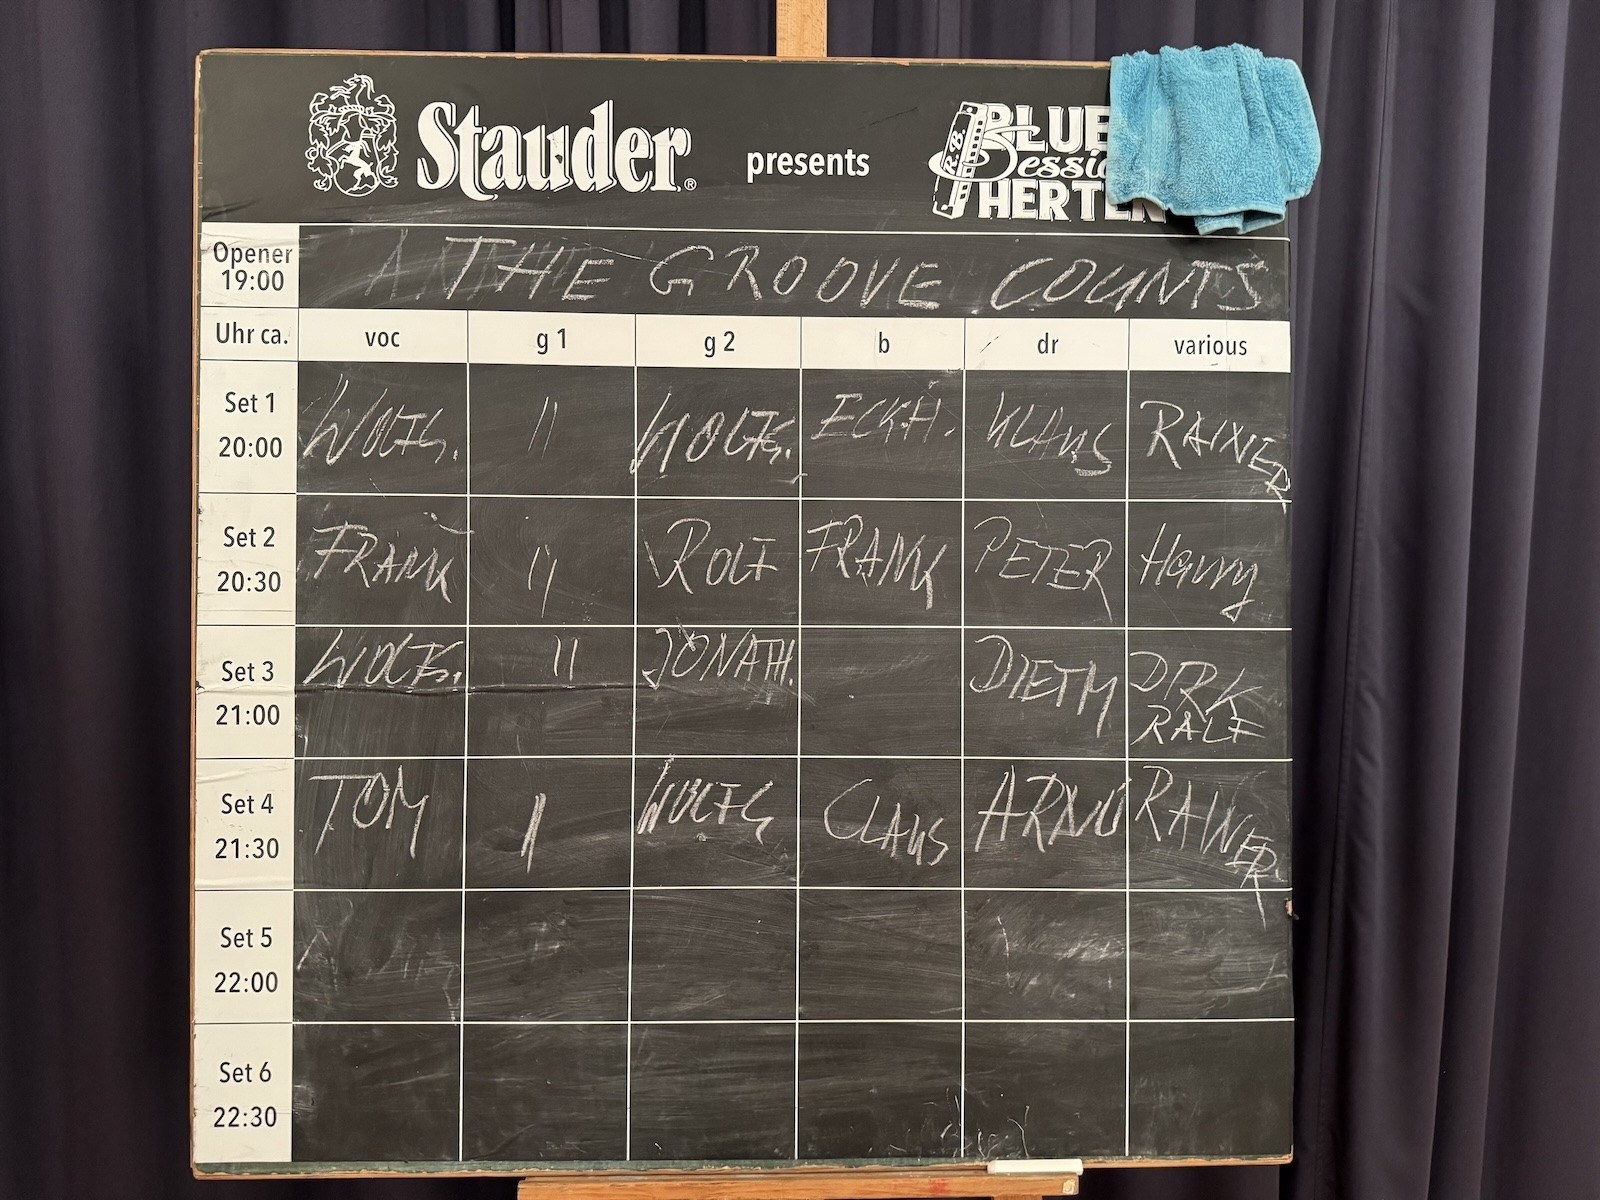 Stauder®
presents
R.B.
BLUE
Sessio
HERTEN
Opener
19:00
THE GROOVE COUNTS
Uhr ca. voc g 1 g 2 b dr various
Set 1
20:00
WOLFG. 〃 WOLFG. ECKH. KLAUS RAINER
Set 2
20:30
FRANK 〃 ROLF FRANK PETER
Set 3
21:00
WOLFG. 〃 JONATH. DIETM DIRK
RALF
Set 4
21:30
TOM 〃 WOLFG CLAUS ARNO RAINER
Set 5
22:00
Set 6
22:30